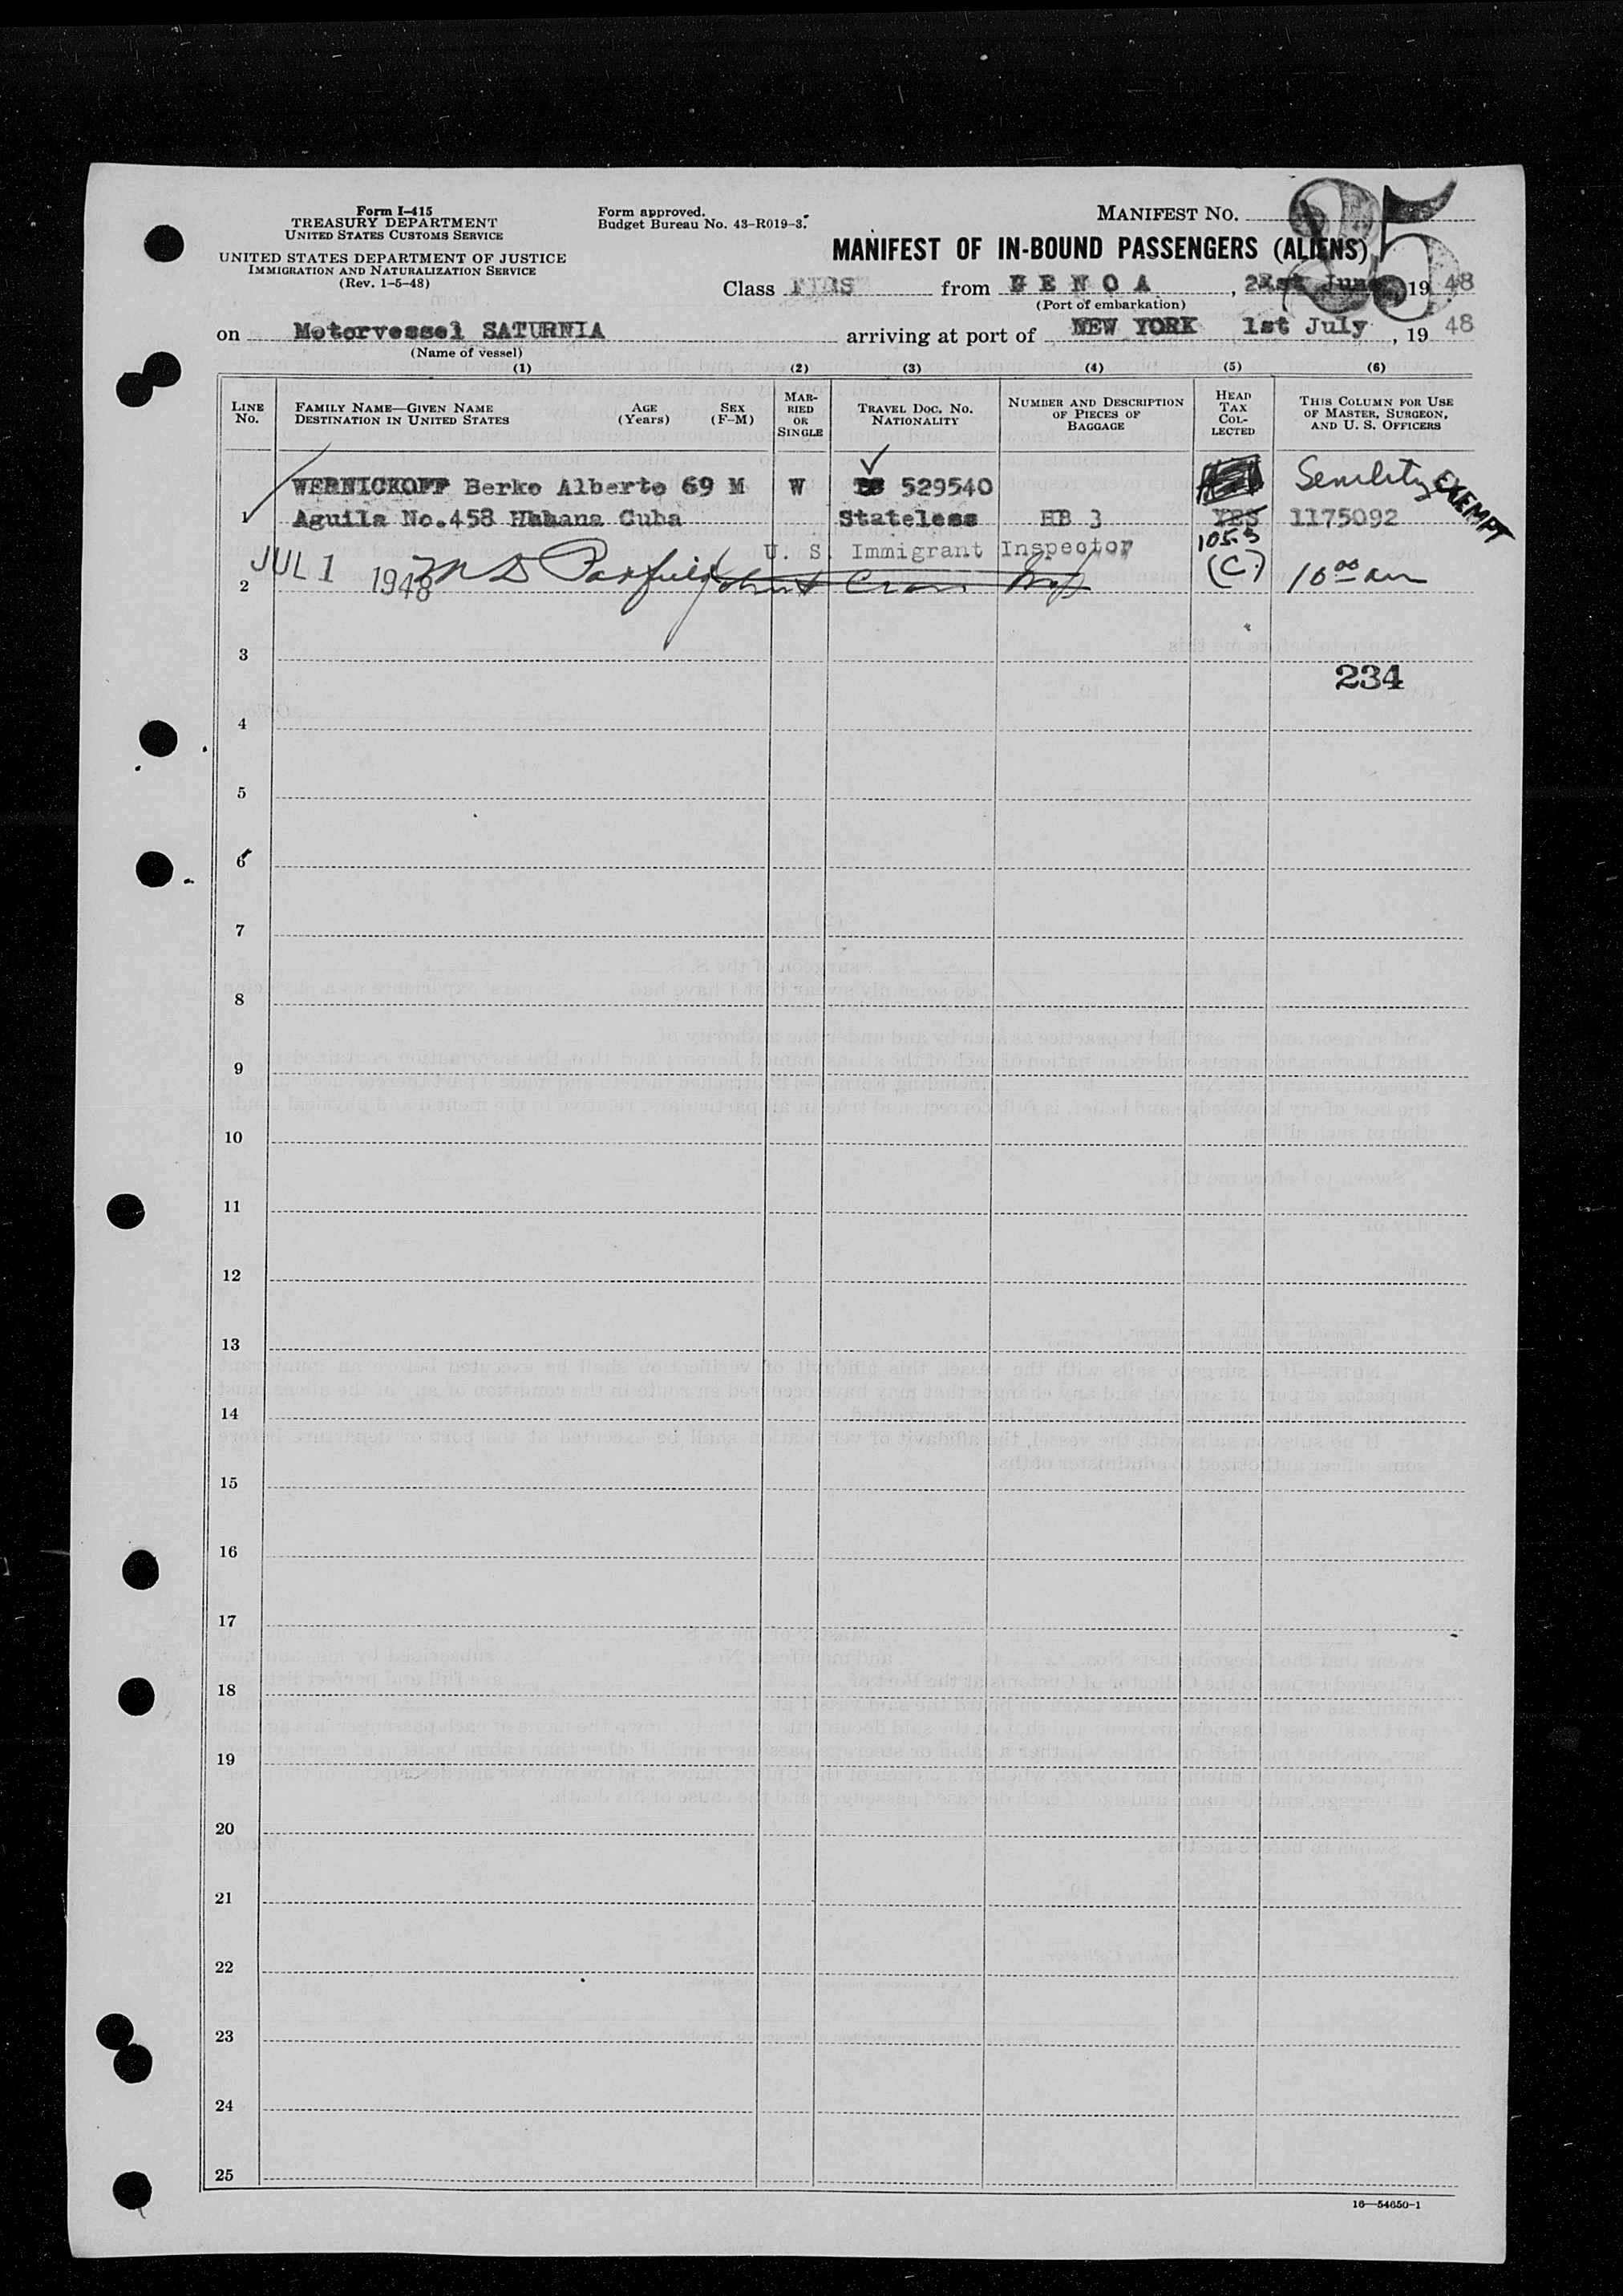 Form I-415
TREASURY DEPARTMENT
UNITED STATES CUSTOMS SERVICE
UNITED STATES DEPARTMENT OF JUSTICE
IMMIGRATION AND NATURALIZATION SERVICE
(Rev. 1-5-48)
Form approved.
Budget Bureau No. 43-R019-3.
MANIFEST NO. 35
MANIFEST OF IN-BOUND PASSENGERS (ALIENS)
Class FIRS from GENOA, 21st June, 1948
(Port of embarkation)
on Motorvessel SATURNIA arriving at port of NEW YORK 1st July, 1948
(Name of vessel)
(1) (2) (3) (4) (5) (6)
LINE NO.
FAMILY NAME—GIVEN NAME
DESTINATION IN UNITED STATES
AGE (Years)
SEX (F-M)
MARRIED OR SINGLE
TRAVEL DOC. NO.
NATIONALITY
NUMBER AND DESCRIPTION OF PIECES OF BAGGAGE
HEAD TAX COLLECTED
THIS COLUMN FOR USE OF MASTER, SURGEON, AND U. S. OFFICERS
WERNICKOFF Berko Alberto 69 M W 529540 Senility EXEMPT
1 Aguila No.458 Habana Cuba Stateless HB 3 YES 1175092
U. S. Immigrant Inspector 1055
JUL 1 1948 (C) 10 00 am
2
3
234
4
5
6
7
8
9
10
11
12
13
14
15
16
17
18
19
20
21
22
23
24
25
16—54650-1